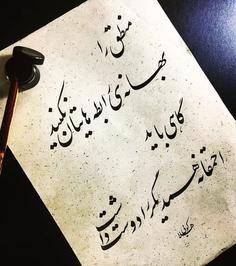 منطق را
بهانهٔ رابطه هایتان نکنید
گاهی باید
احمقانه همدیگر را دوست داشت